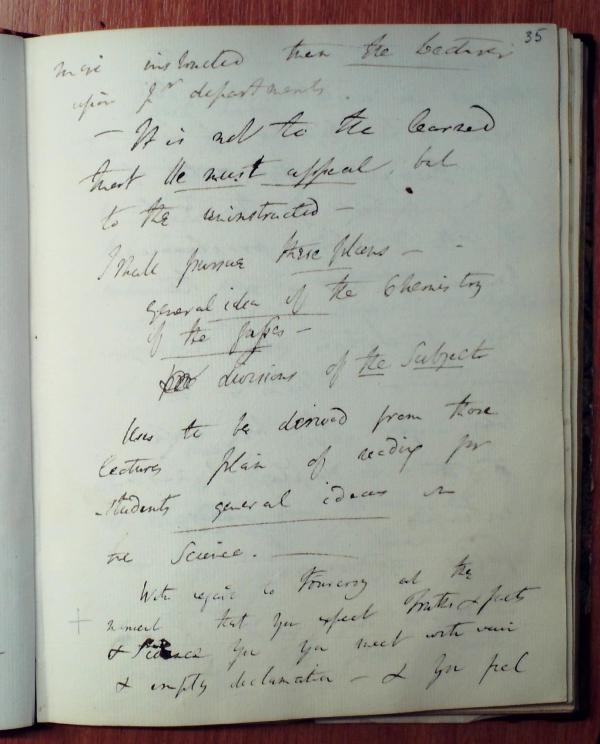 35
more instructed than the Lecturer
upon yr departments
— It is not to the learned
that We must appeal, but
to the uninstructed —
I shall pursue these plans —
general idea of the Chemistry
of the gasses —
divisions of the Subject
Uses to be derived from these
lectures plan of reading for
students general ideas on
the Science. —
With regard to at the
moment that you expect Truths & facts
& Science you meet with vain
& empty declamation — & you feel